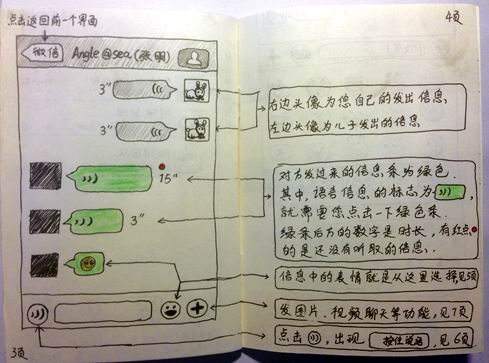 点击返回前一个界面
微信
Angle@sea(张明)
3"
3"
15"
3"
3页
4页
右边头像为您自己的发出信息
左边头像为儿子发出的信息
对方发过来的信息条为绿色.
其中,语音信息的标志为
,
就需要您点击一下绿色条.
绿条后方的数字是时长,有红点
的是还没有听取的信息.
信息中的表情就是从这里选择,见5页
发图片、视频聊天等功能,见7页
点击
,出现
按住说话
,见6页